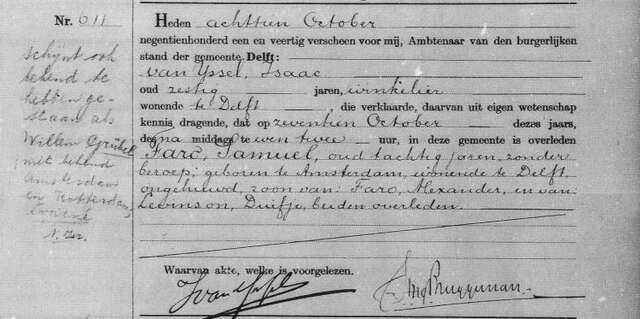 Nr. 611
Heden achttien October
negentienhonderd een en veertig verscheen voor mij, Ambtenaar van den burgerlijken
stand der gemeente Delft:
van Yssel, Isaac
oud zestig jaren, winkelier
wonende te Delft, die verklaarde, daarvan uit eigen wetenschap
kennis dragende, dat op zeventien October dezes jaars,
des na middags te twee uur, in deze gemeente is overleden
Faro, Samuel, oud tachtig jaren, zonder
beroep, geboren te Amsterdam, wonende te Delft
ongehuwd, zoon van: Faro, Alexander, en van
Levinson, Duifje, beiden overleden.
Waarvan akte, welke is voorgelezen.
schijnt ook
bekend te
hebben ge-
staan als
Willem
niet bekend
Amsterdam
en Rotterdam